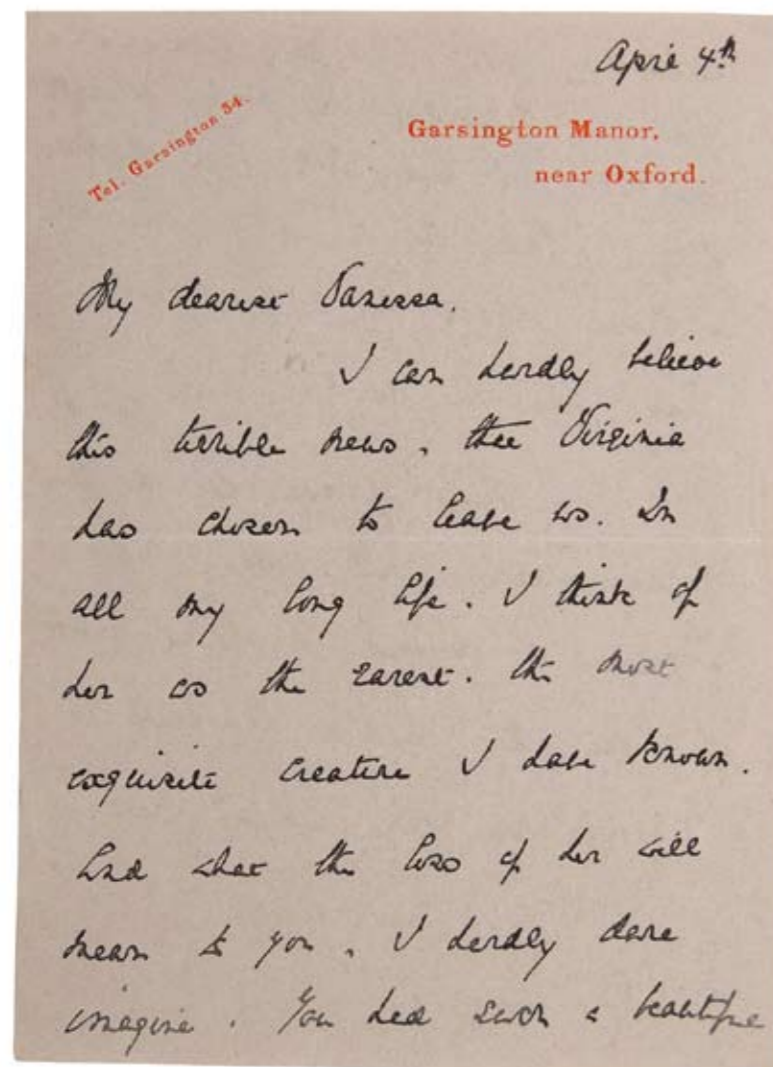 April 4th
Tel. Garsington 54.
Garsington Manor,
near Oxford.
My dearest Vanessa.
I can hardly believe
this terrible news, that Virginia
has chosen to leave us. In
all my long life. I think of
her as the rarest. the most
exquisite creature I have known.
And what the loss of her will
mean to you, I hardly dare
imagine. You had such a beautiful